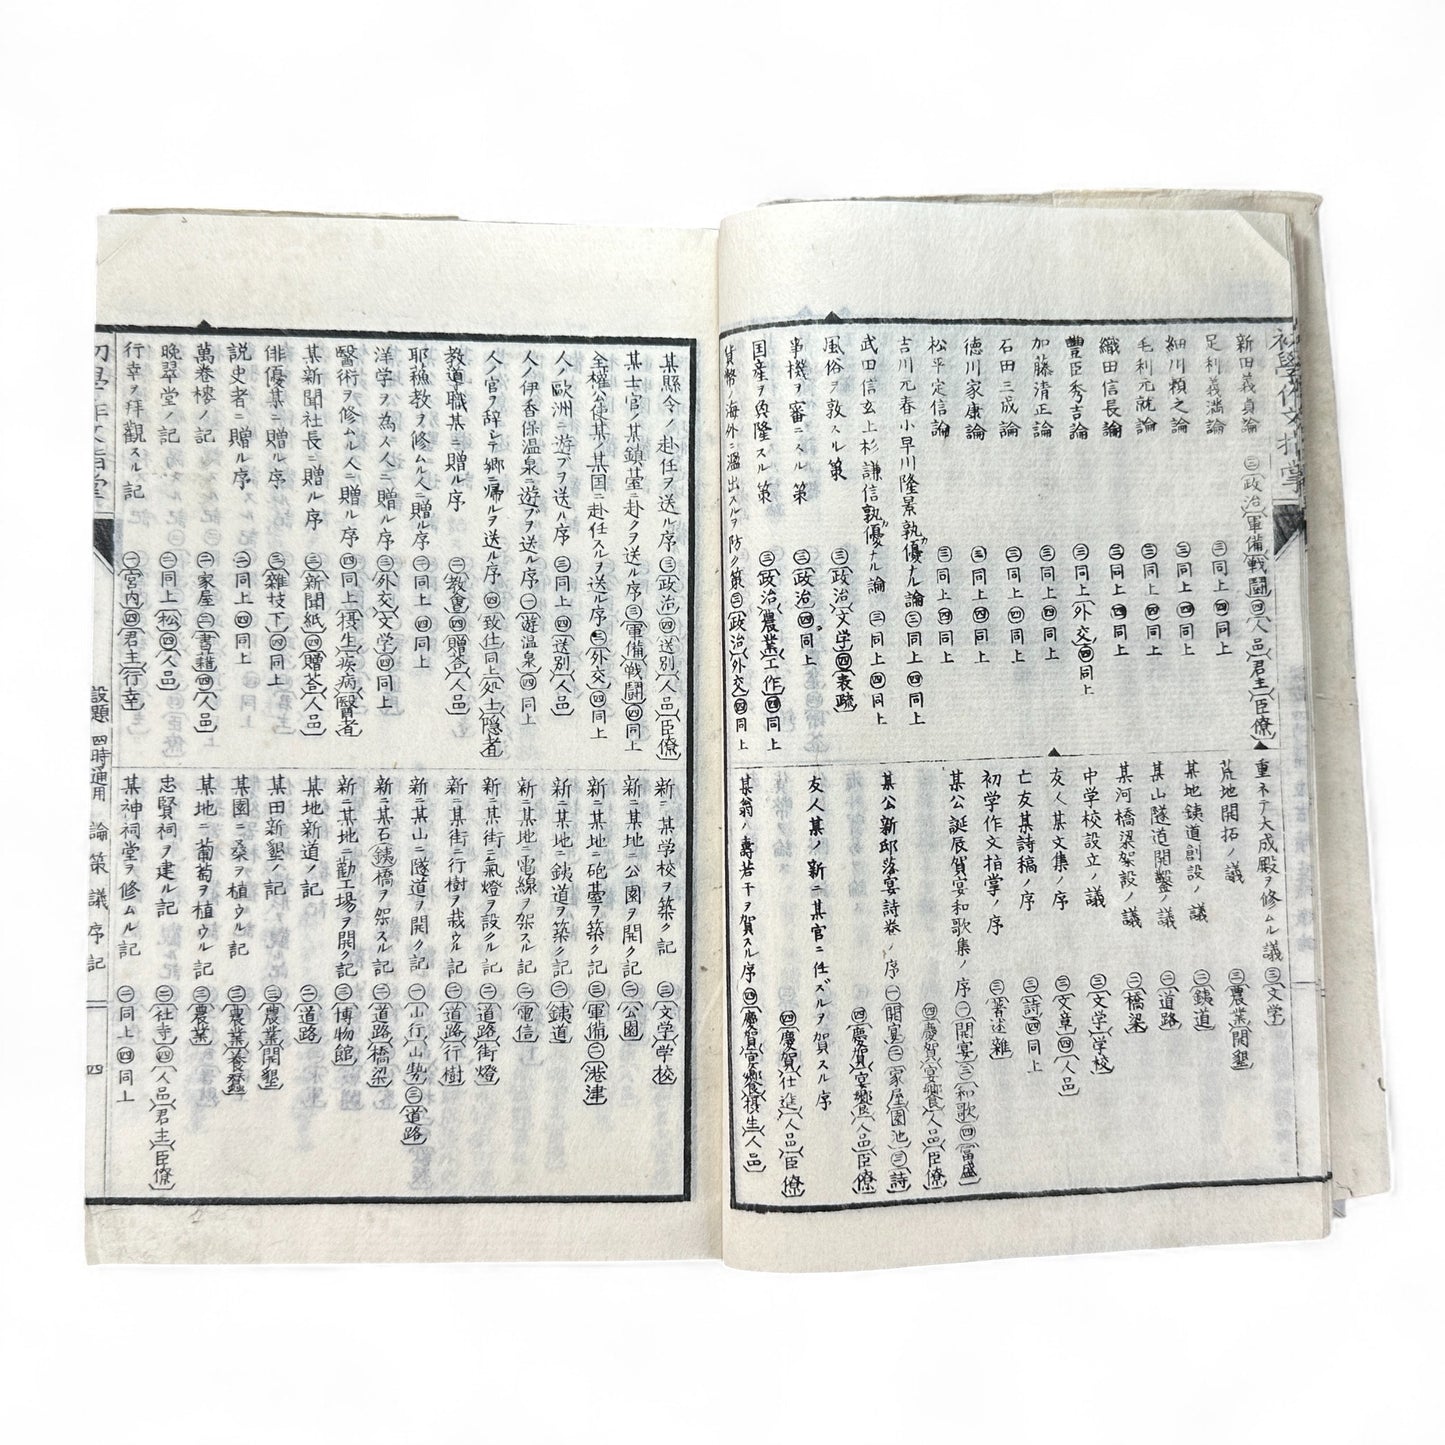 新田義貞論 ㊂政治 軍備 戦闘 ㊃人品 君主 臣僚
足利義満論 ㊂同上 ㊃同上
細川頼之論 ㊂同上 ㊃同上
毛利元就論 ㊂同上 ㊃同上
織田信長論 ㊂同上 ㊃同上
豊臣秀吉論 ㊂同上 外交 ㊃同上
加藤清正論 ㊂同上 ㊃同上
石田三成論 ㊂同上 ㊃同上
徳川家康論 ㊂同上 ㊃同上
松平定信論 ㊂同上 ㊃同上
吉川元春小早川隆景孰優ナル論 ㊂同上 ㊃同上
武田信玄上杉謙信孰優ナル論 ㊂同上 ㊃同上
風俗ヲ敦スル策 ㊂政治 文学 ㊃表疏
事機ヲ審ニスル策 ㊂政治 ㊃同上
国産ヲ興隆スル策 ㊂政治 農業 工作 ㊃同上
貨幣ノ海外ニ濫出スルヲ防ク策 ㊂政治 外交 ㊃同上
重ネテ大成殿ヲ修ムル議 ㊂文学
荒地開拓ノ議 ㊂農業 開墾
某地鉄道創設ノ議 ㊁鉄道
某山隧道開鑿ノ議 ㊁道路
某河橋梁架設ノ議 ㊁橋梁
中学校設立ノ議 ㊂文学 学校
友人某文集ノ序 ㊂文章 ㊃人品
亡友某詩稿ノ序 ㊂詩 ㊃同上
初学作文指掌ノ序 ㊂著述 雑
某公誕辰賀宴和歌集ノ序 ㊀開宴 ㊂和歌 ㊃富盛
㊃慶賀 宴饗 人品 臣僚
某公新邸落宴詩巻ノ序 ㊀開宴 ㊁家屋 園池 ㊂詩
㊃慶賀 宴饗 人品 臣僚
友人某ノ新ニ某官ニ任ズルヲ賀スル序
㊃慶賀 仕進 人品 臣僚
某翁ノ寿若干ヲ賀スル序 ㊃慶賀 宴饗 摂生 人品
某縣令ノ赴任ヲ送ル序 ㊂政治 ㊃送別 人品 臣僚
某士官ノ某鎮䑓ニ赴クヲ送ル序 ㊂軍備 戦闘 ㊃同上
全權公使某ノ某国ニ赴任スルヲ送ル序 ㊂外交 ㊃同上
人ノ歐洲ニ遊ブヲ送ル序 ㊂同上 ㊃送別 人品
人ノ伊香保温泉ニ遊ブヲ送ル序 ㊀遊温泉 ㊃同上
人ノ官ヲ辞シテ郷ニ帰ルヲ送ル序 ㊃致仕 同上 処士 隠者
教導職某ニ贈ル序 ㊁教會 ㊃贈答 人品
耶蘓教ヲ修ムル人ニ贈ル序 ㊁同上 ㊃同上
洋学ヲ為ス人ニ贈ル序 ㊂外交 文学 ㊃同上
醫術ヲ修ムル人ニ贈ル序 ㊃同上 摂生 疾病 醫者
某新聞社長ニ贈ル序 ㊂新聞紙 ㊃贈答 人品
俳優某ニ贈ル序 ㊂雜技下 ㊃同上
説史者ニ贈ル序 ㊂同上 ㊃同上
萬巻樓ノ記 ㊁家屋 ㊂書籍 ㊃人品
晩翠堂ノ記 ㊁同上 松 ㊃人品
行幸ヲ拝觀スル記 ㊀宮内 ㊃君主 行幸
新ニ某学校ヲ築ク記 ㊂文学 学校
新ニ某地ニ公園ヲ開ク記 ㊁公園
新ニ某地ニ砲䑓ヲ築ク記 ㊂軍備 ㊁港津
新ニ某地ニ鉄道ヲ築ク記 ㊁鉄道
新ニ某地ニ電線ヲ架スル記 ㊁電信
新ニ某街ニ氣燈ヲ設クル記 ㊁道路 街燈
新ニ某街ニ行樹ヲ栽ウル記 ㊁道路 行樹
新ニ某山ニ隧道ヲ開ク記 ㊀山行 山勢 ㊂道路
新ニ某石鉄橋ヲ架スル記 ㊁道路 橋梁
新ニ某地ニ勧工場ヲ開ク記 ㊂博物館
某地新道ノ記 ㊁道路
某田新墾ノ記 ㊂農業 開墾
某園ニ桑ヲ植ウル記 ㊂農業 養蚕
某地ニ葡萄ヲ植ウル記 ㊂農業
忠賢祠ヲ建ル記 ㊁社寺 ㊃人品 君主 臣僚
某神祠堂ヲ修ムル記 ㊁同上 ㊃同上
設題 四時通用 論 策 議 序 記 四